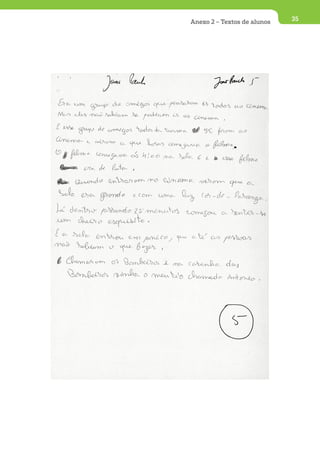 Anexo 2 – Textos de alunos
35
Era um grupo de amigos que pensaram ir todos ao cinema
Mas eles não sabiam se podiam ir ao cinema.
E esse grupo de amigos todos foram
cinema e viram o que horas começava o filme.
O filme começava às na sala 6 e o esse filme
era de luta.
quando entraram no cinema viram que a
sala era grande e com uma luz cor-de-laranja
Lá dentro passado 25 minutos começou a sentir-se
um cheiro esquisito.
E a sala entrou em pânico, que até as pessoas
não sabiam o que fazer.
Chamaram os Bombeiros e na carrinha dos
Bombeiros vinha o meu tio chamado António.
5